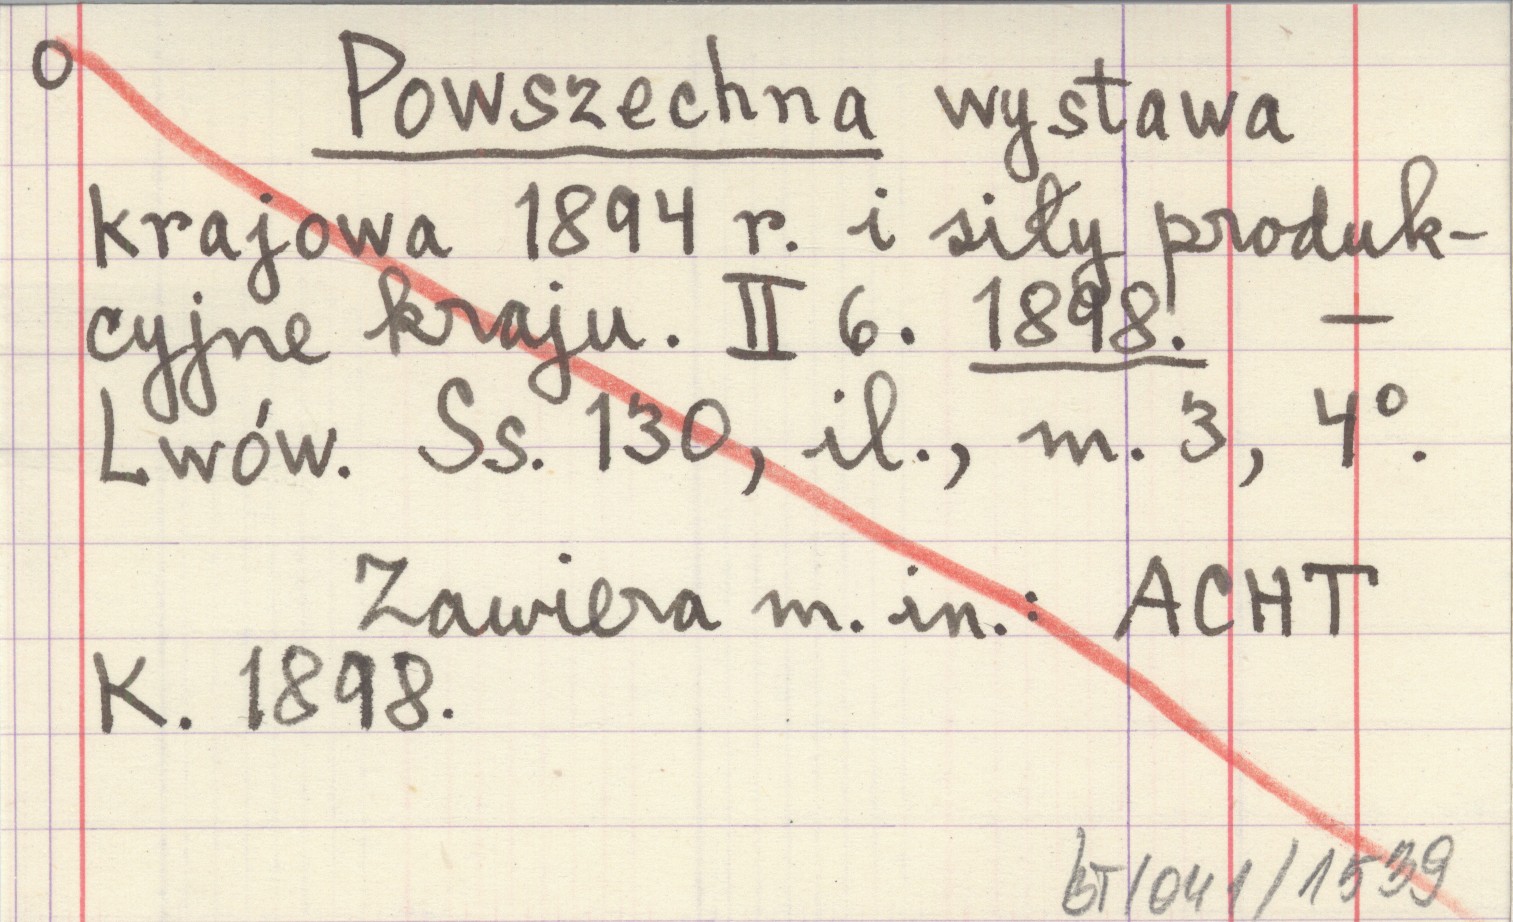 O Powszechna wystawa
krajowa 1894 r. i siły produk-
cyjne kraju. II 6. 1898. —
Lwów. Ss. 130, il., m. 3, 4°.
Zawiera m. in.: ACHT
K. 1898.
bT/041/1539